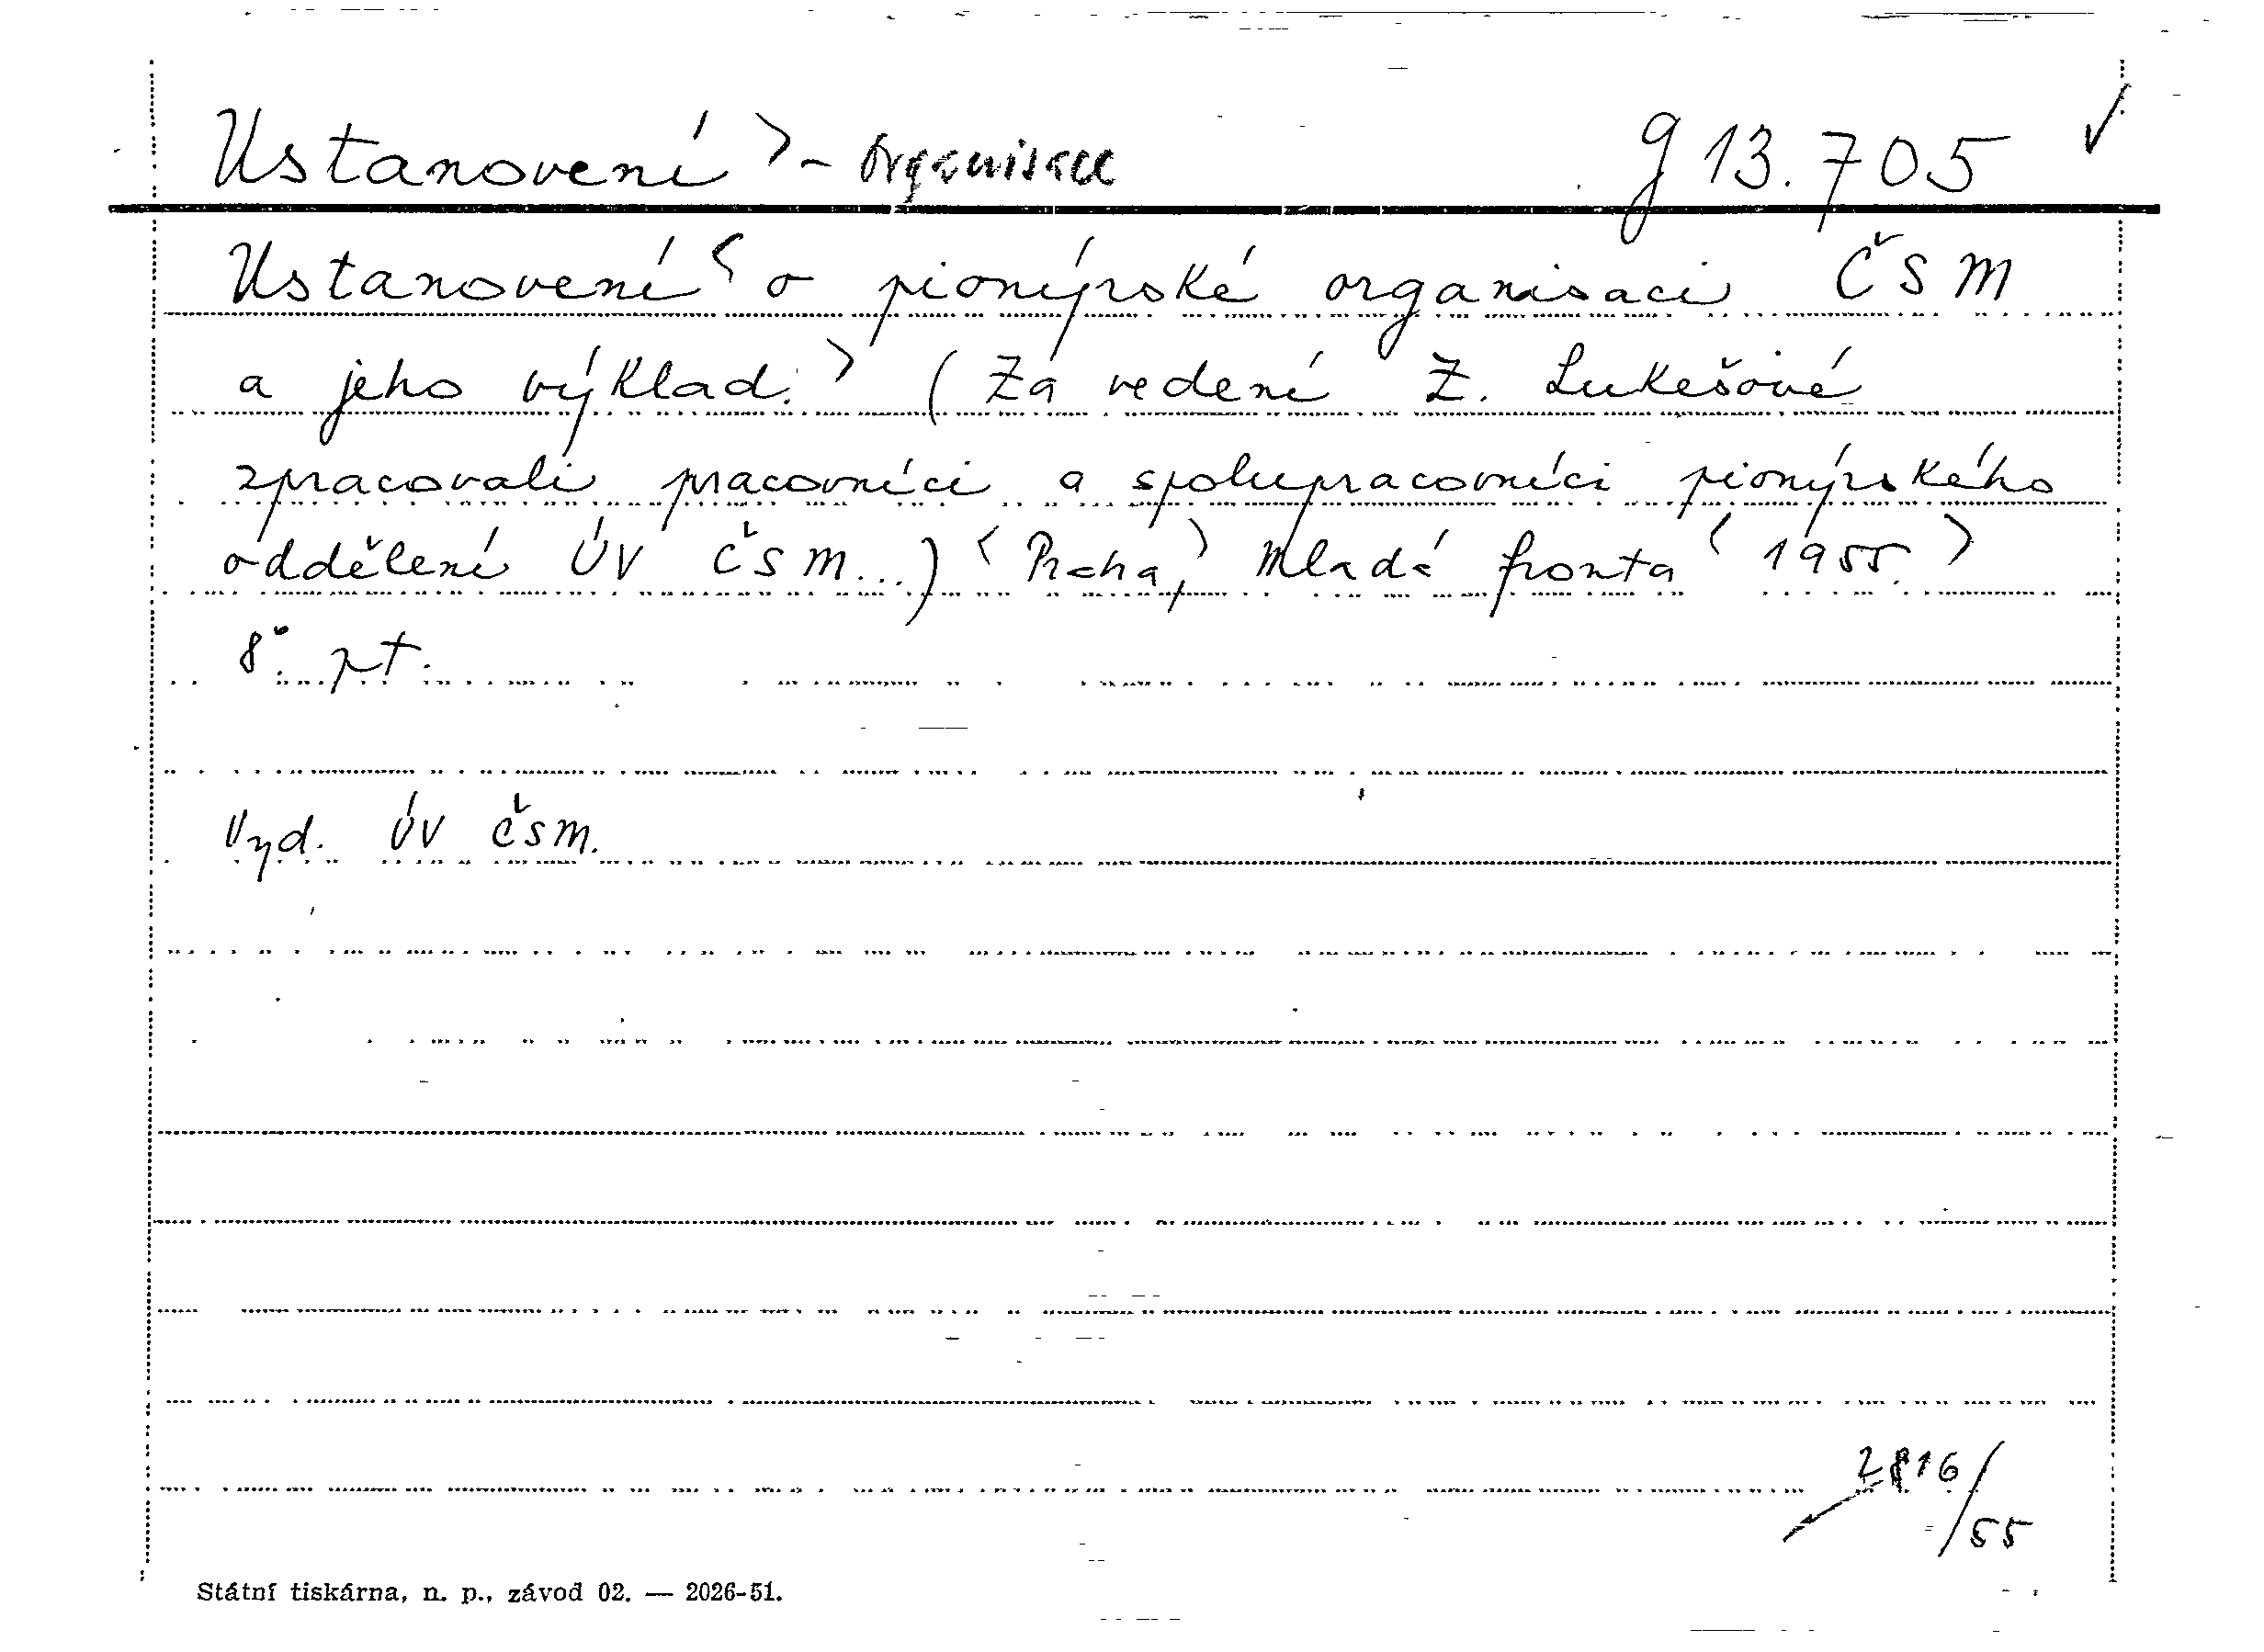 Ustanovení > - organisace g 13.705 ✓
Ustanovení < o pionýrské organisaci ČSM
a jeho výklad. > (Za vedení Z. Lukešové
zpracovali pracovníci a spolupracovníci pionýrského
oddělení ÚV ČSM...) < Praha, > Mladá fronta < 1955. >
8° pt.
Vyd. ÚV ČSM.
2816/
55
Státní tiskárna, n. p., závod 02. — 2026-51.